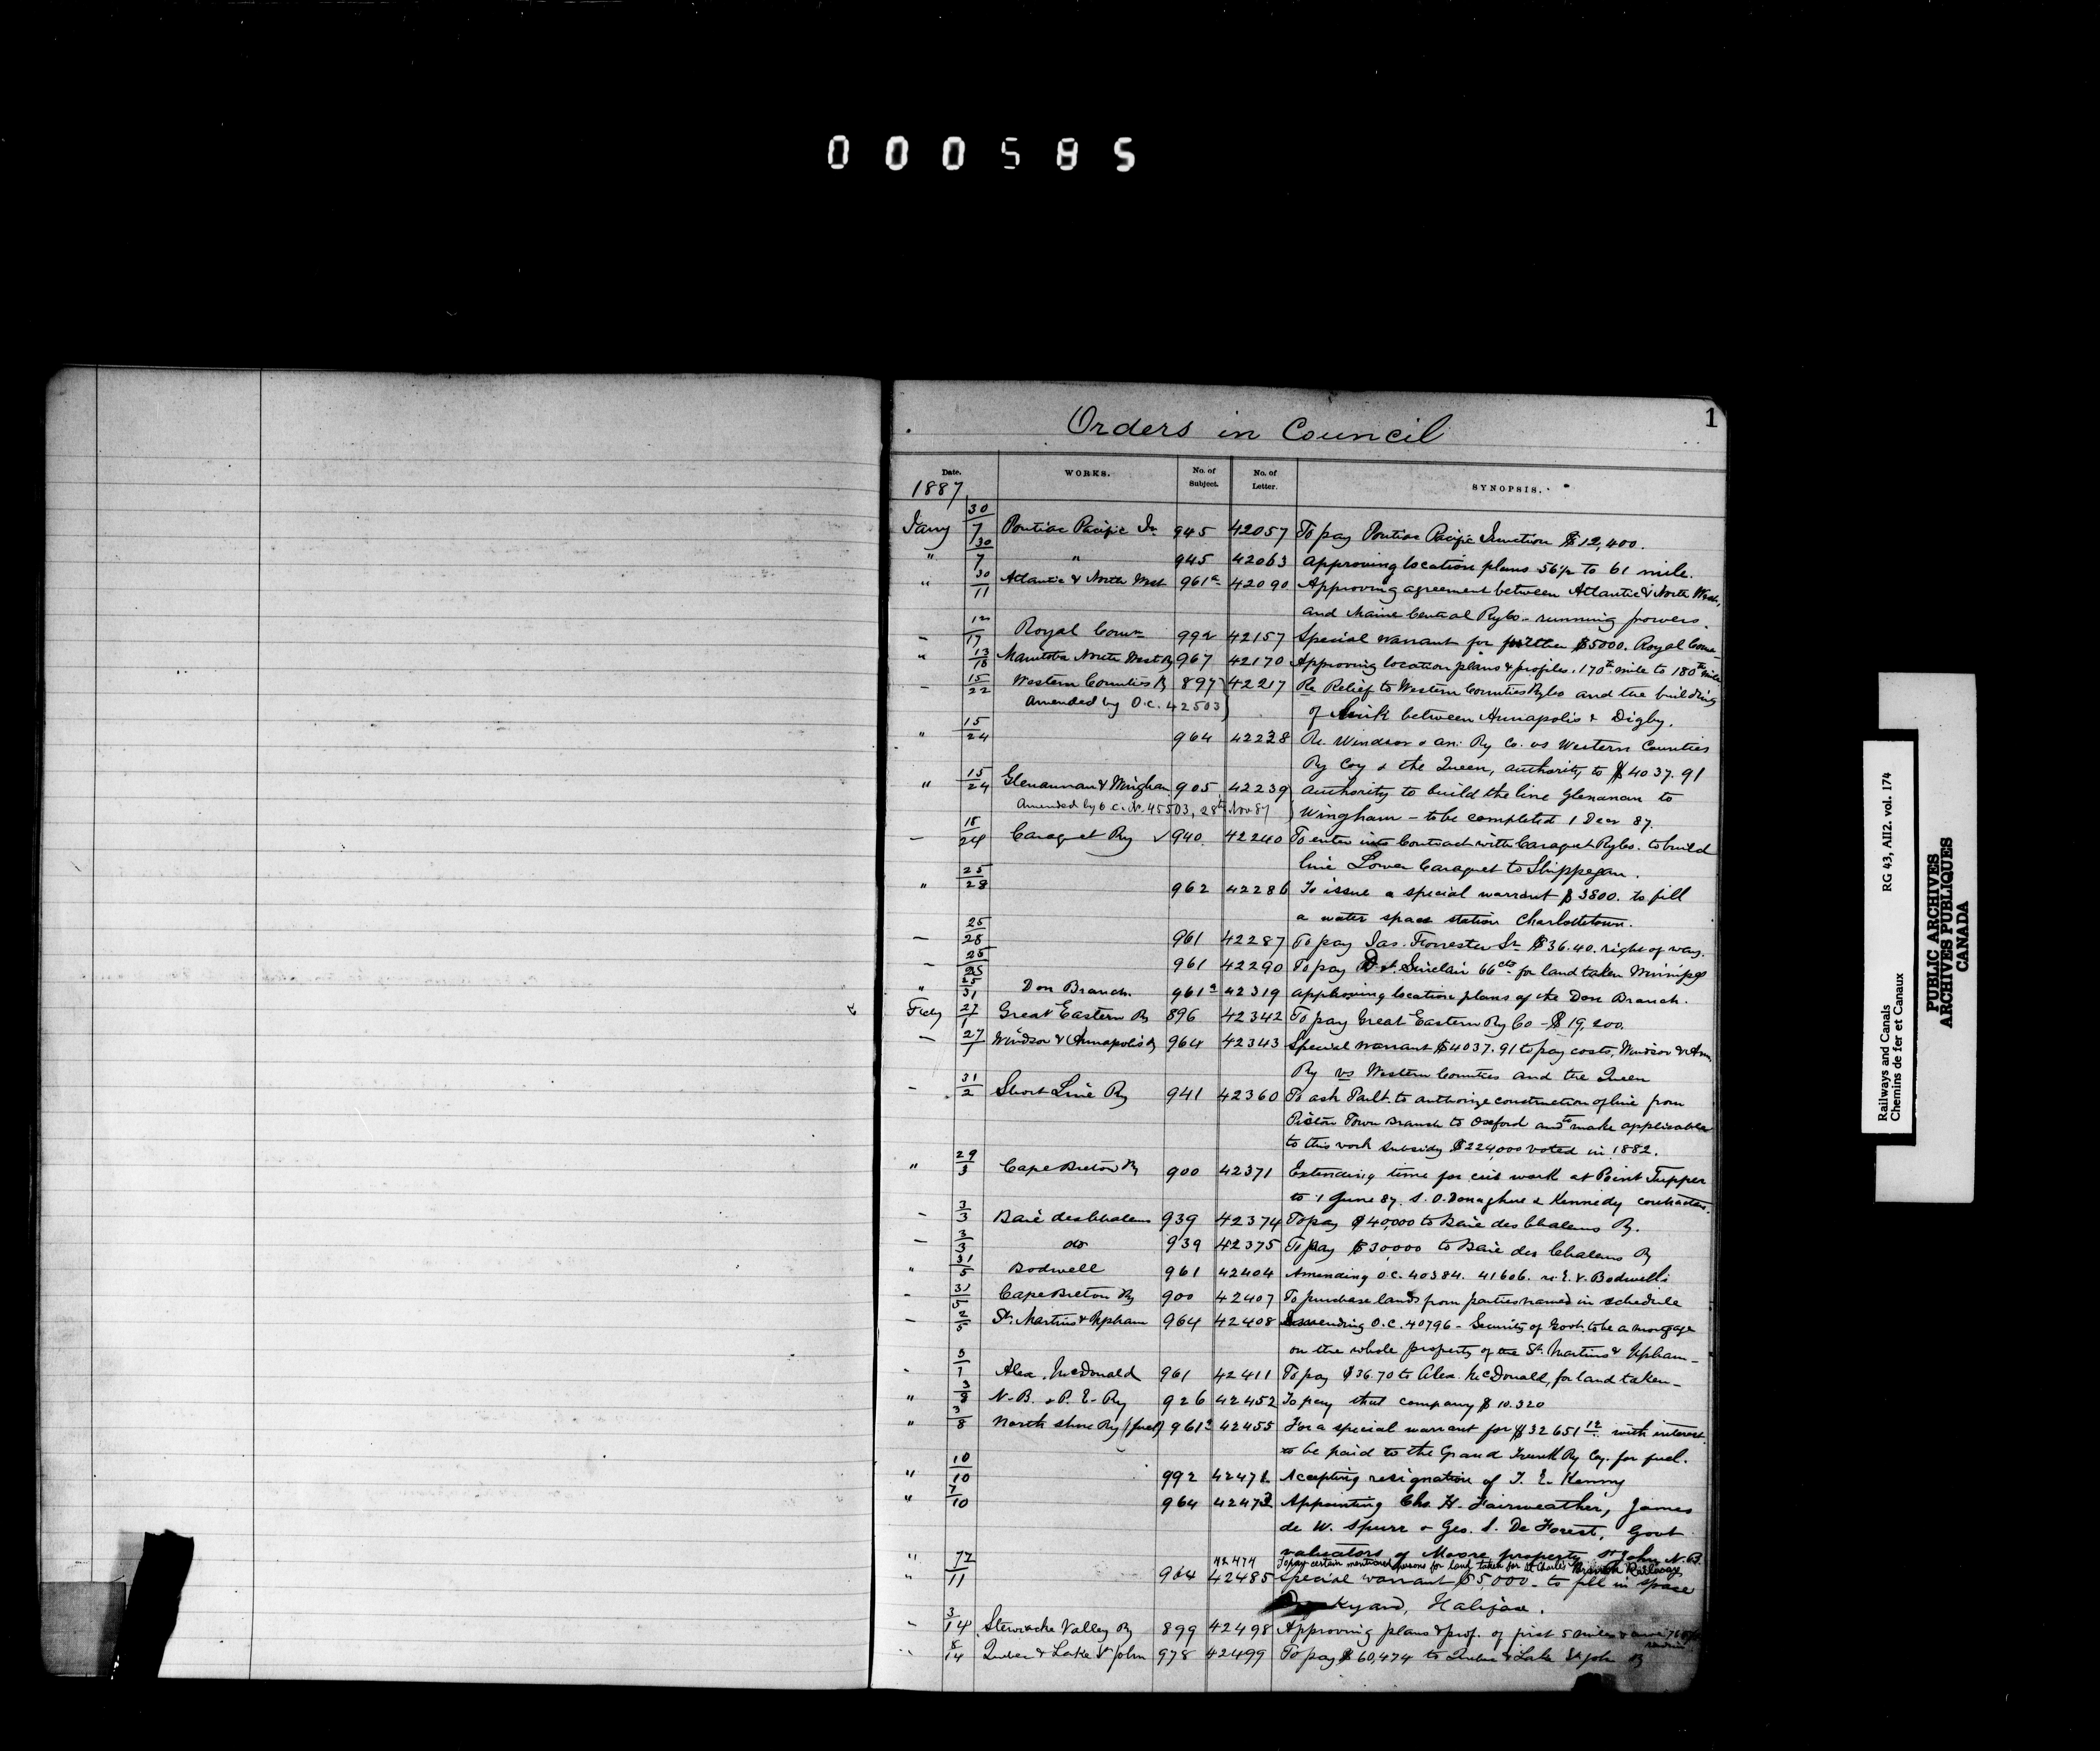 000585
1
Orders in Council
Date. WORKS. No. of Subject. No. of Letter. SYNOPSIS.
1887
Jany 30/7 Pontiac Pacific Jn 945 42057 To pay Pontiac Pacific Junction $12,400.
" 30/7 " 945 42063 Approving location plans 56½ to 61 mile.
" 30/11 Atlantic & North West 961a 42090 Approving agreement between Atlantic & North West,
and Maine Central Ry Co - running powers.
- 12/17 Royal Comn 992 42157 Special warrant for further $5000. Royal Comn
" 13/18 Manitoba North West Ry 967 42170 Approving location plans & profiles. 170th mile to 180th mile
- 15/22 Western Counties Ry 897 42217 Re Relief to Western Counties Ry Co and the building
Amended by O.C. 42503 of link between Annapolis & Digby.
" 15/24 964 42228 Re. Windsor & An: Ry Co. vs Western Counties
Ry Coy & the Queen, authority to $4037.91
" 15/24 Glenannan & Wingham 905 42239 Authority to build the line Glenanan to
Amended by O.C. No. 45503, 28th Nov 87 Wingham - to be completed 1 Decr 87.
- 18/24 Caraquet Ry ✓ 940 42240 To enter into Contract with Caraquet Ry Co. to build
line Lower Caraquet to Shippegan.
" 25/28 962 42286 To issue a special warrant $3800. to fill
a water space station Charlottetown.
- 25/28 961 42287 To pay Jas. Forrester Sr $36.40. right of way.
- 25/25 961 42290 To pay Sinclair 66cts for land taken Winnipeg
" 25/31 Don Branch 961a 42319 Approving location plans of the Don Branch.
Feby 27/1 Great Eastern Ry 896 42342 To pay Great Eastern Ry Co - $19,200.
- 27/1 Windsor & Annapolis Ry 964 42343 Special warrant $4037.91 to pay costs, Windsor & Ann.
Ry vs Western Counties and the Queen
- 31/2 Short Line Ry 941 42360 To ask Parlt. to authorize construction of line from
Pictou Town Branch to Oxford and to make applicable
to this work subsidy $224,000 voted in 1882.
" 29/3 Cape Breton Ry 900 42371 Extending time for crib work at Point Tupper
to 1 June 87. S. O.Donaghue & Kennedy contractors.
- 3/3 Baie des Chaleurs 939 42374 To pay $40,000 to Baie des Chaleurs Ry.
- 3/3 do 939 42375 To pay $30,000 to Baie des Chaleurs Ry
" 31/5 Bodwell 961 42404 Amending O.C. 40384. 41606. re. E.V. Bodwell's
- 31/5 Cape Breton Ry 900 42407 To purchase lands from parties named in schedule
- 2/5 St. Martins & Upham 964 42408 Amending O.C. 40796 - Security of Govt. to be a mortgage
on the whole property of the St. Martins & Upham -
- 5/7 Alex. McDonald 961 42411 To pay $36.70 to Alex. McDonald, for land taken -
" 3/8 N.B. & P.E. Ry 926 42452 To pay that company $10.320
" 3/8 North Shore Ry (fuel) 961a 42455 For a special warrant for $32651.12 with interest
to be paid to the Grand Trunk Ry Coy. for fuel.
" 10/10 992 42471 Accepting resignation of T. E. Kenny
" 7/10 964 42473 Appointing Chs. H. Fairweather, James
de W. Spurr & Geo. S. De Forest, Govt
valuators of Moore property St John N.B.
" 42474 To pay certain mentioned persons for land taken for St Charles Branch Railway
" 7/11 964 42485 Special warrant $5000 - to fill in space
Dockyard, Halifax.
- 3/14 Stewiacke Valley Ry 899 42498 Approving plans & prof. of first 5 miles
8/14 Quebec & Lake St John 978 42499 To pay $60,474 to Quebec & Lake St John Ry
Railways and Canals RG 43, AII2. vol. 174
Chemins de fer et Canaux
PUBLIC ARCHIVES
ARCHIVES PUBLIQUES
CANADA